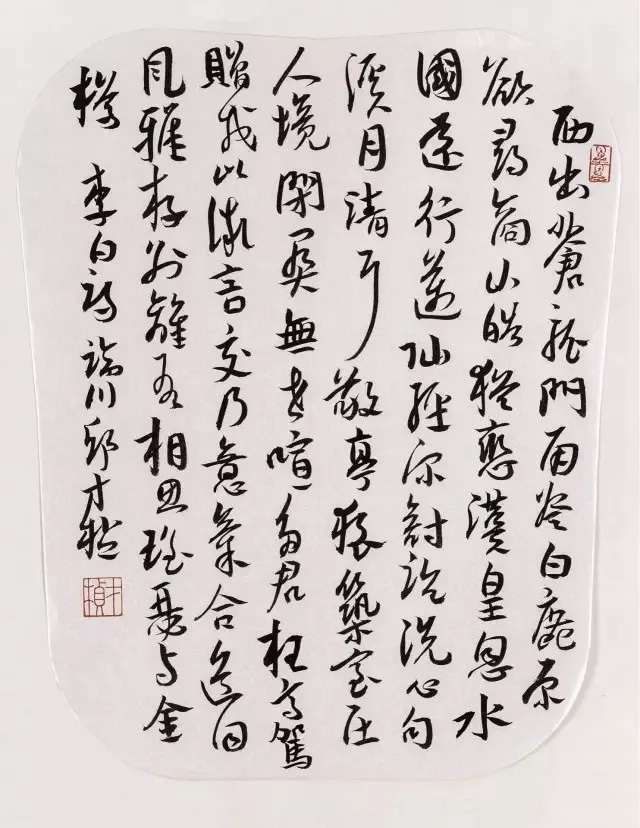 西出蒼龍門南登白鹿原
欲尋商山皓猶戀漢皇恩水
國遠行邁仙經深討論洗心向
溪月清耳敬亭猿築室在
人境閉門無世喧多君枉高駕
贈我以微言交乃意氣合道因
風雅存別離有相思瑤瑟與金
樽 李白詩 臨川邱才楨
才楨